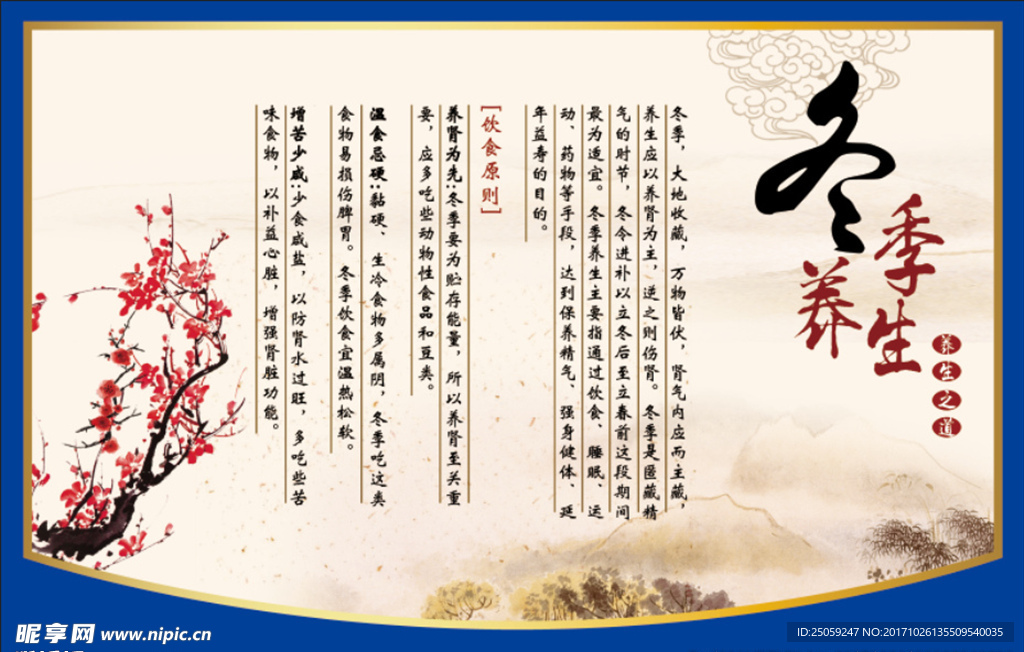 冬季养生
养生之道
冬季，大地收藏，万物皆伏，肾气内应而主藏，
养生应以养肾为主，逆之则伤肾。冬季是匿藏精
气的时节，冬令进补以立冬后至立春前这段期间
最为适宜。冬季养生主要指通过饮食、睡眠、运
动、药物等手段，达到保养精气、强身健体、延
年益寿的目的。
[饮食原则]
养肾为先:冬季要为贮存能量，所以养肾至关重
要，应多吃些动物性食品和豆类。
温食忌硬:黏硬、生冷食物多属阴，冬季吃这类
食物易损伤脾胃。冬季饮食宜温热松软。
增苦少咸:少食咸盐，以防肾水过旺，多吃些苦
味食物，以补益心脏，增强肾脏功能。
昵享网 www.nipic.cn
ID:25059247 NO:20171026135509540035